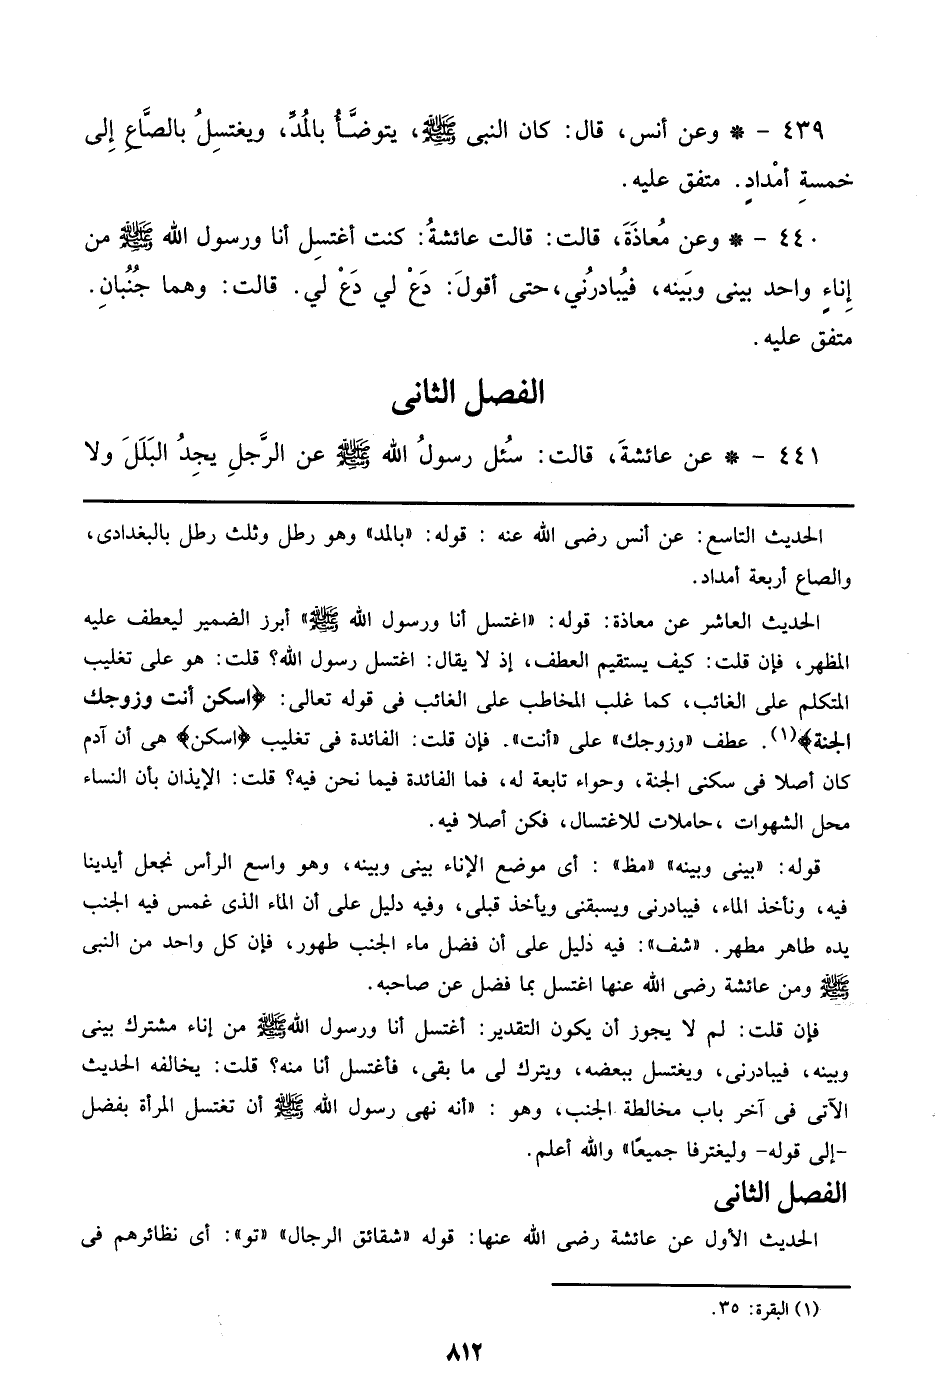 ٤٣٩ - * وعن أنس، قال: كان النبى ﷺ، يتوضَّأُ بالمُدِّ، ويغتسِلُ بالصَّاعِ إِلى
خمسةِ أمْدادٍ. متفق عليه.
٤٤٠ - * وعن مُعاذَةَ، قالت: قالت عائشةُ: كنت أغتسِل أنا ورسول الله ﷺ من
إِناءٍ واحد بينى وبَينه، فيُبادرُني،حتى أقولَ: دَعْ لي دَعْ لي. قالت: وهما جُنُبانِ.
متفق عليه.
الفصل الثانى
٤٤١ - * عن عائشةَ، قالت: سئُل رسولُ الله ﷺ عن الرَّجلِ يجِدُ البَلَلَ ولا
الحديث التاسع: عن أنس رضى الله عنه : قوله: «بالمد» وهو رطل وثلث رطل بالبغدادى،
والصاع أربعة أمداد.
الحديث العاشر عن معاذة: قوله: «اغتسل أنا ورسول الله ﷺ» أبرز الضمير ليعطف عليه
المظهر، فإن قلت: كيف يستقيم العطف، إذ لا يقال: اغتسل رسول الله؟ قلت: هو على تغليب
المتكلم على الغائب، كما غلب المخاطب على الغائب فى قوله تعالى: ﴿اسكن أنت وزوجك
الجنة﴾(١). عطف «وزوجك» على «أنت». فإن قلت: الفائدة فى تغليب ﴿اسكن﴾ هى أن آدم
كان أصلا فى سكنى الجنة، وحواء تابعة له، فما الفائدة فيما نحن فيه؟ قلت: الإيذان بأن النساء
محل الشهوات ،حاملات للاغتسال، فكن أصلا فيه.
قوله: «بينى وبينه» «مظ» : أى موضع الإناء بينى وبينه، وهو واسع الرأس نجعل أيدينا
فيه، ونأخذ الماء، فيبادرنى ويسبقنى ويأخذ قبلى، وفيه دليل على أن الماء الذى غمس فيه الجنب
يده طاهر مطهر. «شف»: فيه دليل على أن فضل ماء الجنب طهور، فإن كل واحد من النبى
ﷺ ومن عائشة رضى الله عنها اغتسل بما فضل عن صاحبه.
فإن قلت: لم لا يجوز أن يكون التقدير: أغتسل أنا ورسول اللهﷺ من إناء مشترك بينى
وبينه، فيبادرنى، ويغتسل ببعضه، ويترك لى ما بقى، فأغتسل أنا منه؟ قلت: يخالفه الحديث
الآتى فى آخر باب مخالطة الجنب، وهو : «أنه نهى رسول الله ﷺ أن تغتسل المرأة بفضل
-إلى قوله- وليغترفا جميعًا» والله أعلم.
الفصل الثانى
الحديث الأول عن عائشة رضى الله عنها: قوله «شقائق الرجال» «تو»: أى نظائرهم فى
(١) البقرة: ٣٥.
٨١٢